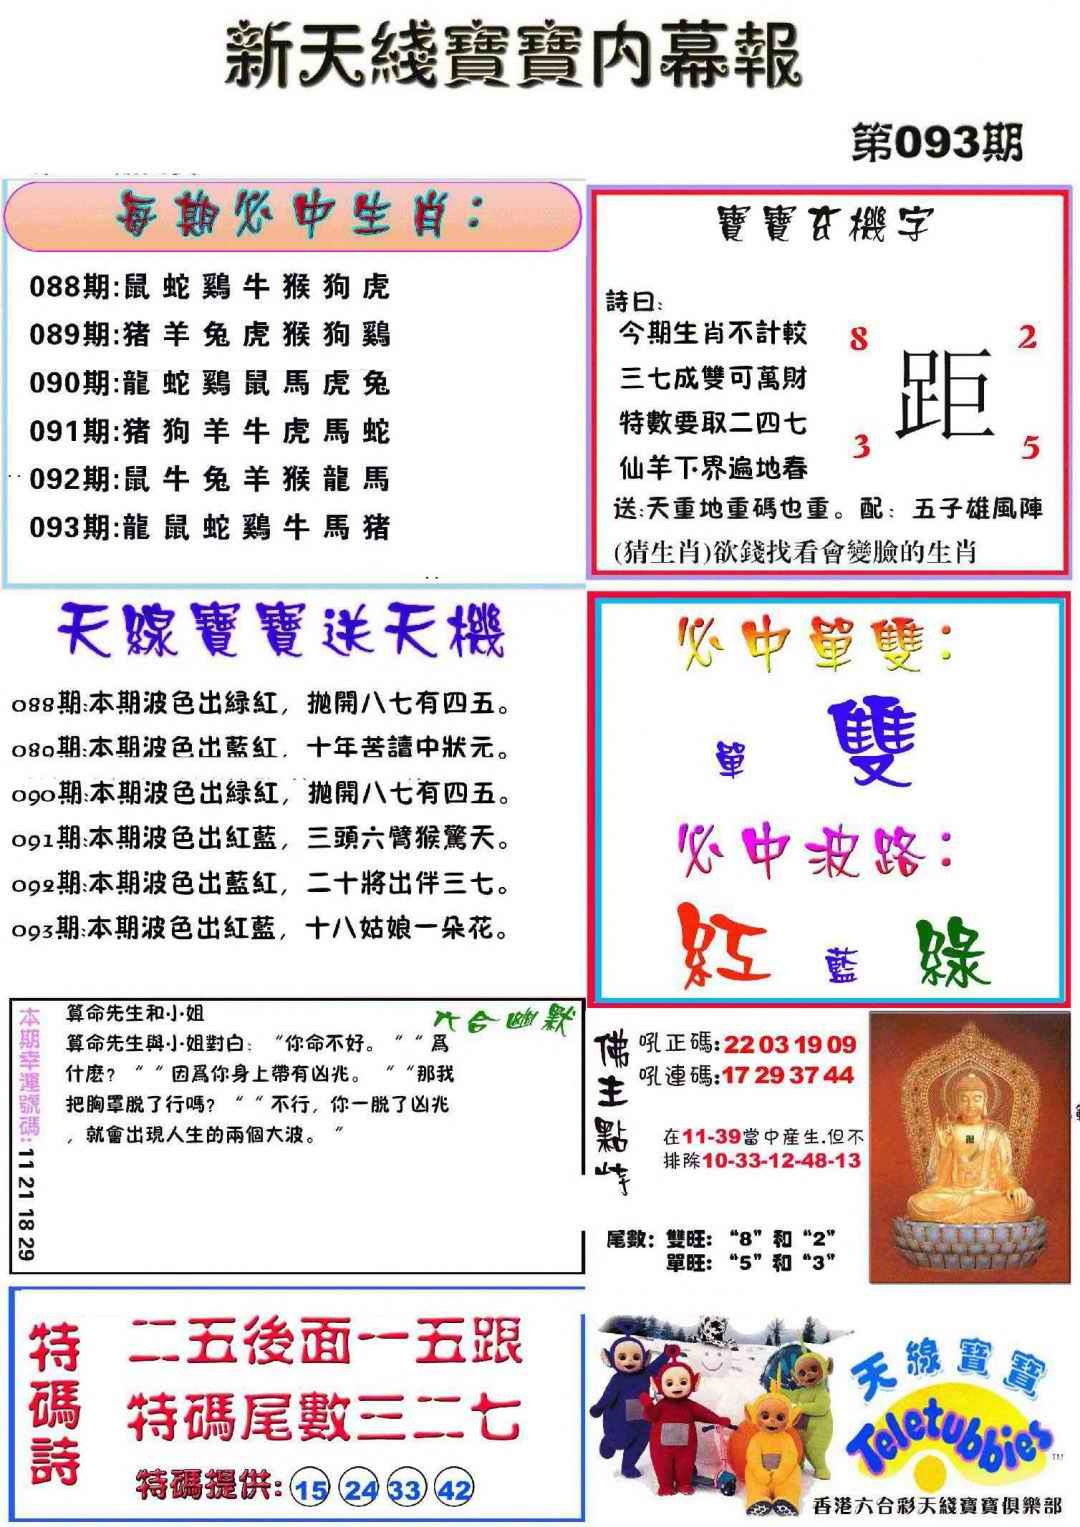 新天綫寶寶内幕報
第093期
每期必中生肖：
088期:鼠 蛇 鷄 牛 猴 狗 虎
089期:猪 羊 兔 虎 猴 狗 鷄
090期:龍 蛇 鷄 鼠 馬 虎 兔
091期:猪 狗 羊 牛 虎 馬 蛇
092期:鼠 牛 兔 羊 猴 龍 馬
093期:龍 鼠 蛇 鷄 牛 馬 猪
寶寶玄機字
詩曰:
今期生肖不計較
三七成雙可萬財
特數要取二四七
仙羊下界遍地春
8 2
距
3 5
送:天重地重碼也重。配：五子雄風陣
(猜生肖)欲錢找看會變臉的生肖
天線寶寶送天機
088期:本期波色出緑紅，抛開八七有四五。
089期:本期波色出藍紅，十年苦讀中狀元。
090期:本期波色出緑紅，抛開八七有四五。
091期:本期波色出紅藍，三頭六臂猴驚天。
092期:本期波色出藍紅，二十將出伴三七。
093期:本期波色出紅藍，十八姑娘一朵花。
必中單雙：
單 雙
必中波路：
紅 藍 綠
本期幸運號碼: 11 21 18 29
六合幽默
算命先生和小姐
算命先生與小姐對白："你命不好。" "爲
什麽？" "因爲你身上帶有凶兆。" "那我
把胸罩脱了行嗎？" "不行，你一脱了凶兆
，就會出現人生的兩個大波。"
佛主點特
吼正碼:22 03 19 09
吼連碼:17 29 37 44
在11-39當中産生.但不
排除10-33-12-48-13
尾數：雙旺：“8”和“2”
單旺：“5”和“3”
特碼詩
二五後面一五跟
特碼尾數三二七
特碼提供: 15 24 33 42
天線寶寶
Teletubbies
TM
香港六合彩天綫寶寶俱樂部